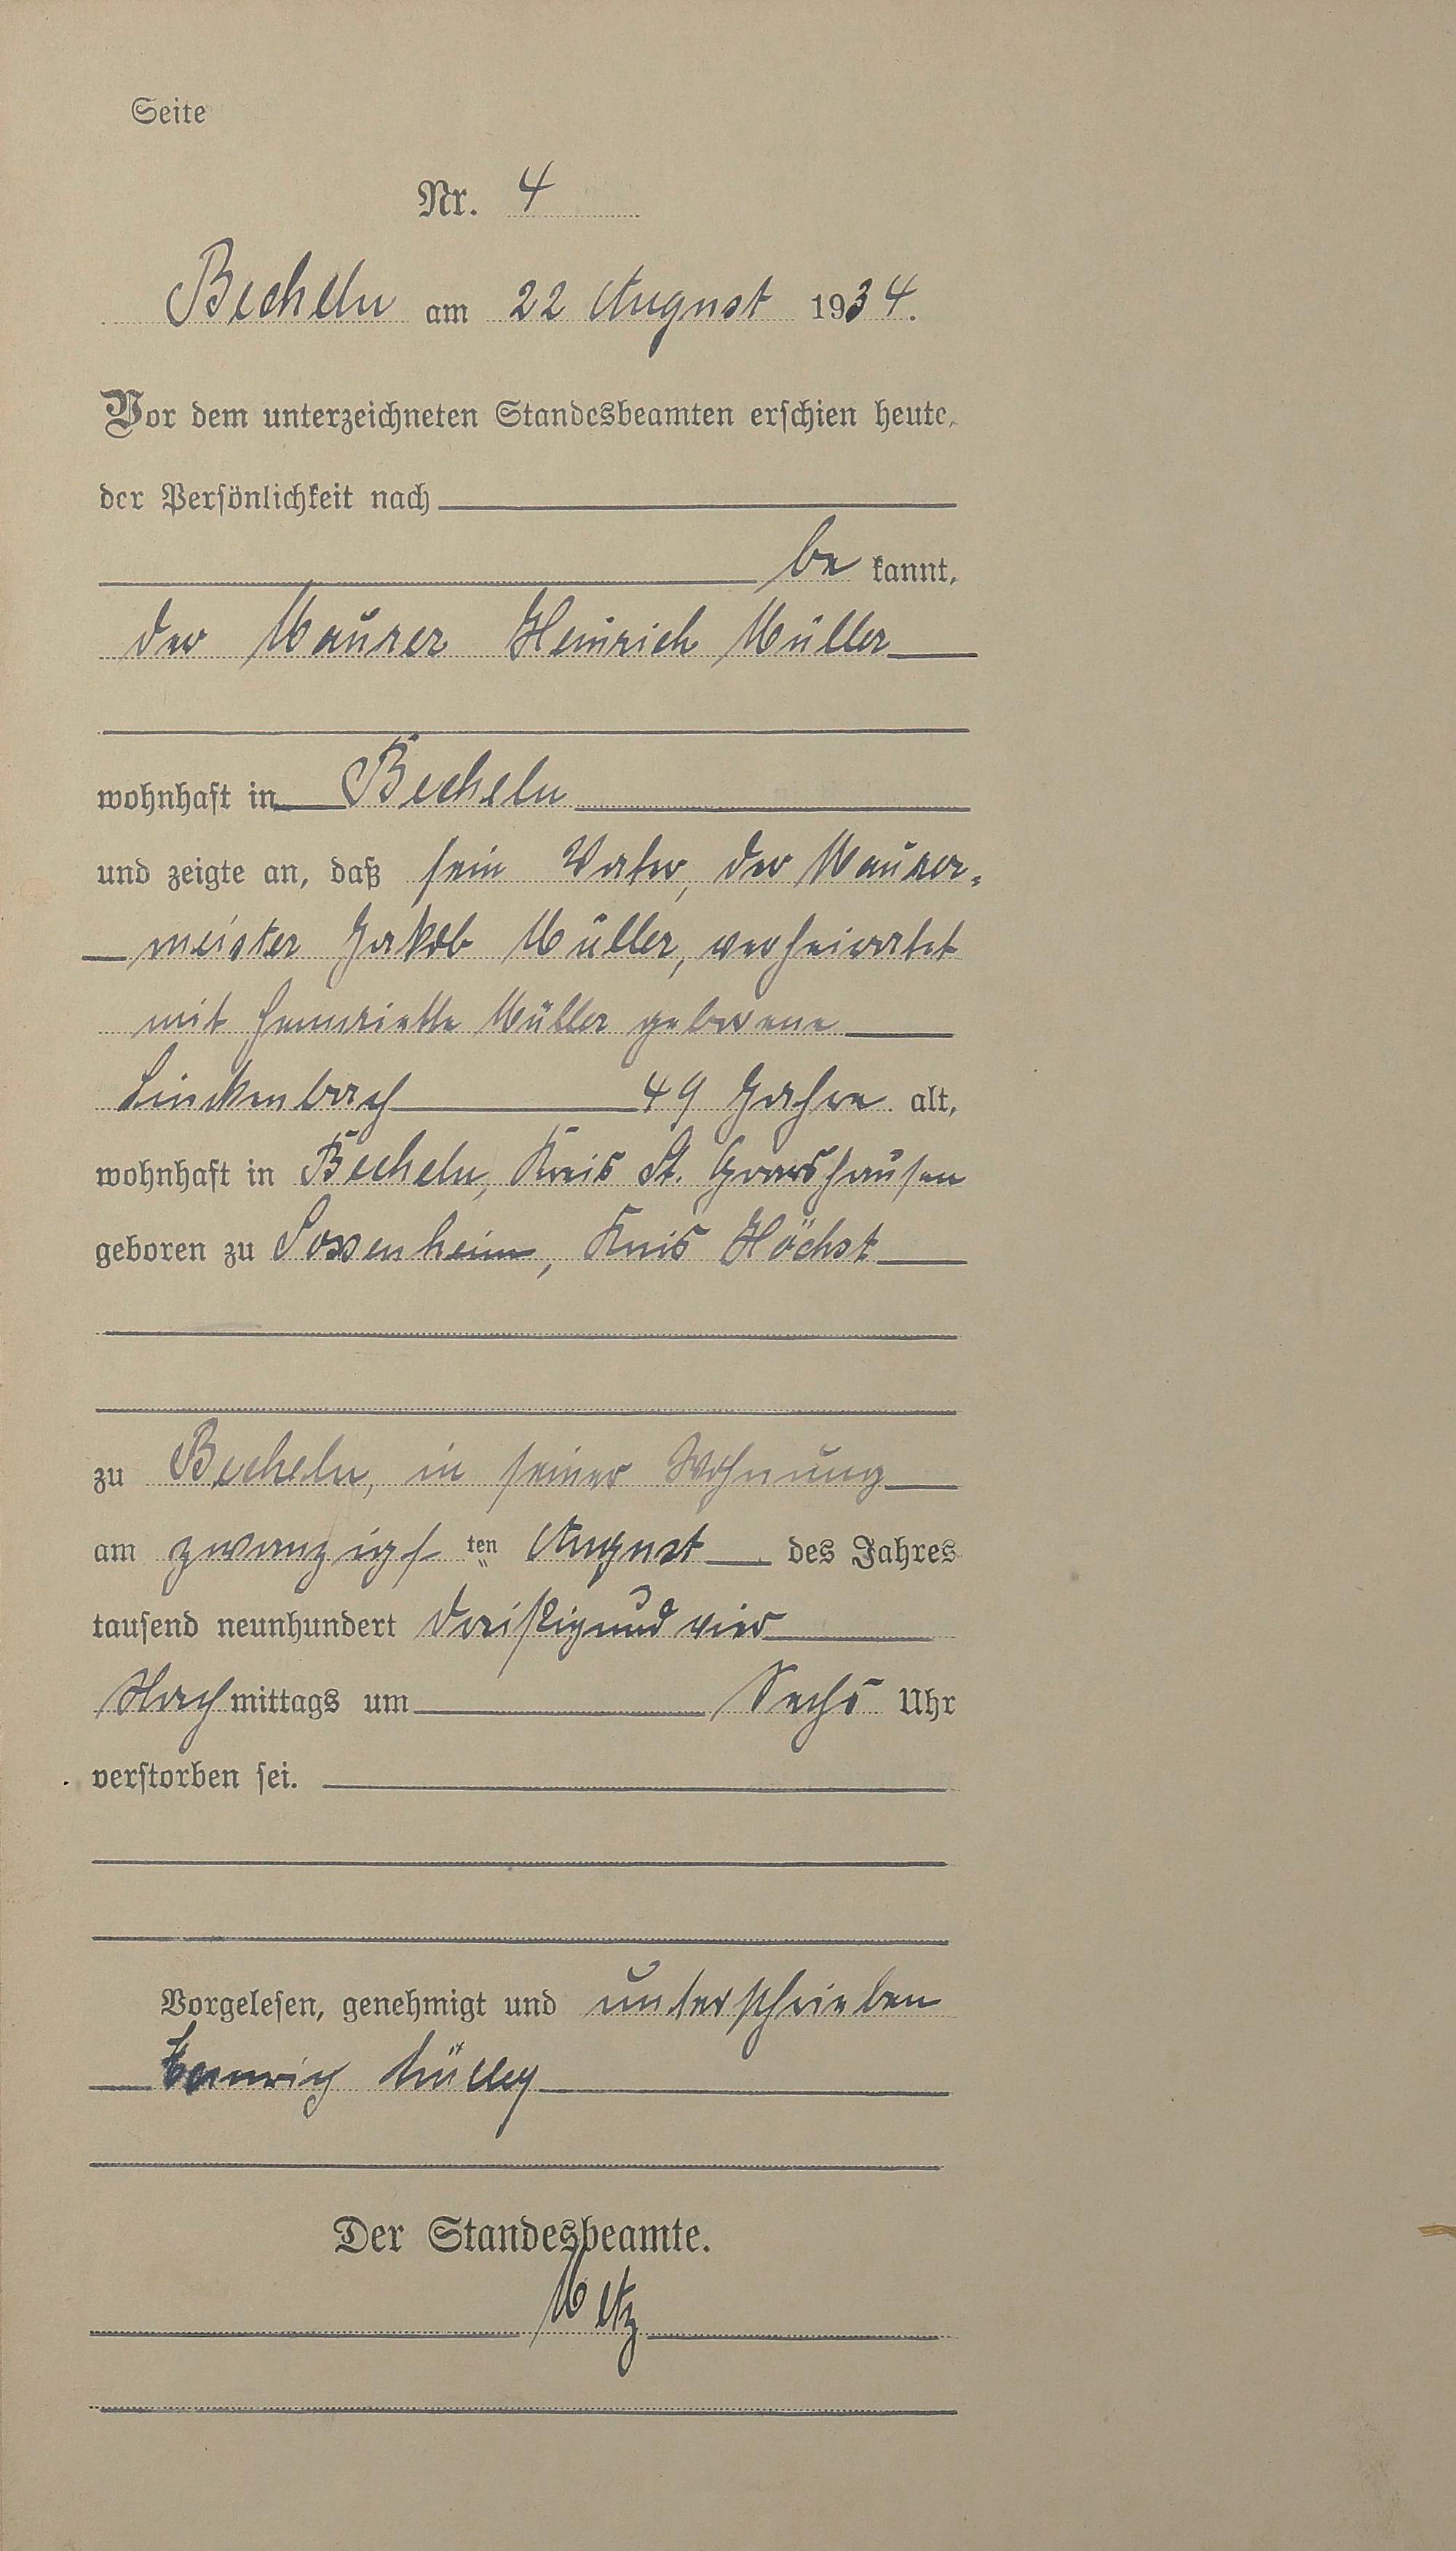 Seite
Nr. 4
Becheln am 22 August 1934.
Vor dem unterzeichneten Standesbeamten erschien heute,
der Persönlichkeit nach
be kannt,
der Maurer Heinrich Müller
wohnhaft in Becheln
und zeigte an, daß sein Vater, der Maurer-
meister Jakob Müller, verheiratet
mit Henriette Müller geborene
Linkenbach 49 Jahre alt,
wohnhaft in Becheln, Kreis St. Goarshausen
geboren zu Sossenheim, Kreis Höchst
zu Becheln, in seiner Wohnung
am zwanzigs ten August des Jahres
tausend neunhundert dreißigundvier
Nachmittags um Sechs Uhr
verstorben sei.
Vorgelesen, genehmigt und unterschrieben
Heinrich Müller
Der Standesbeamte.
Metz